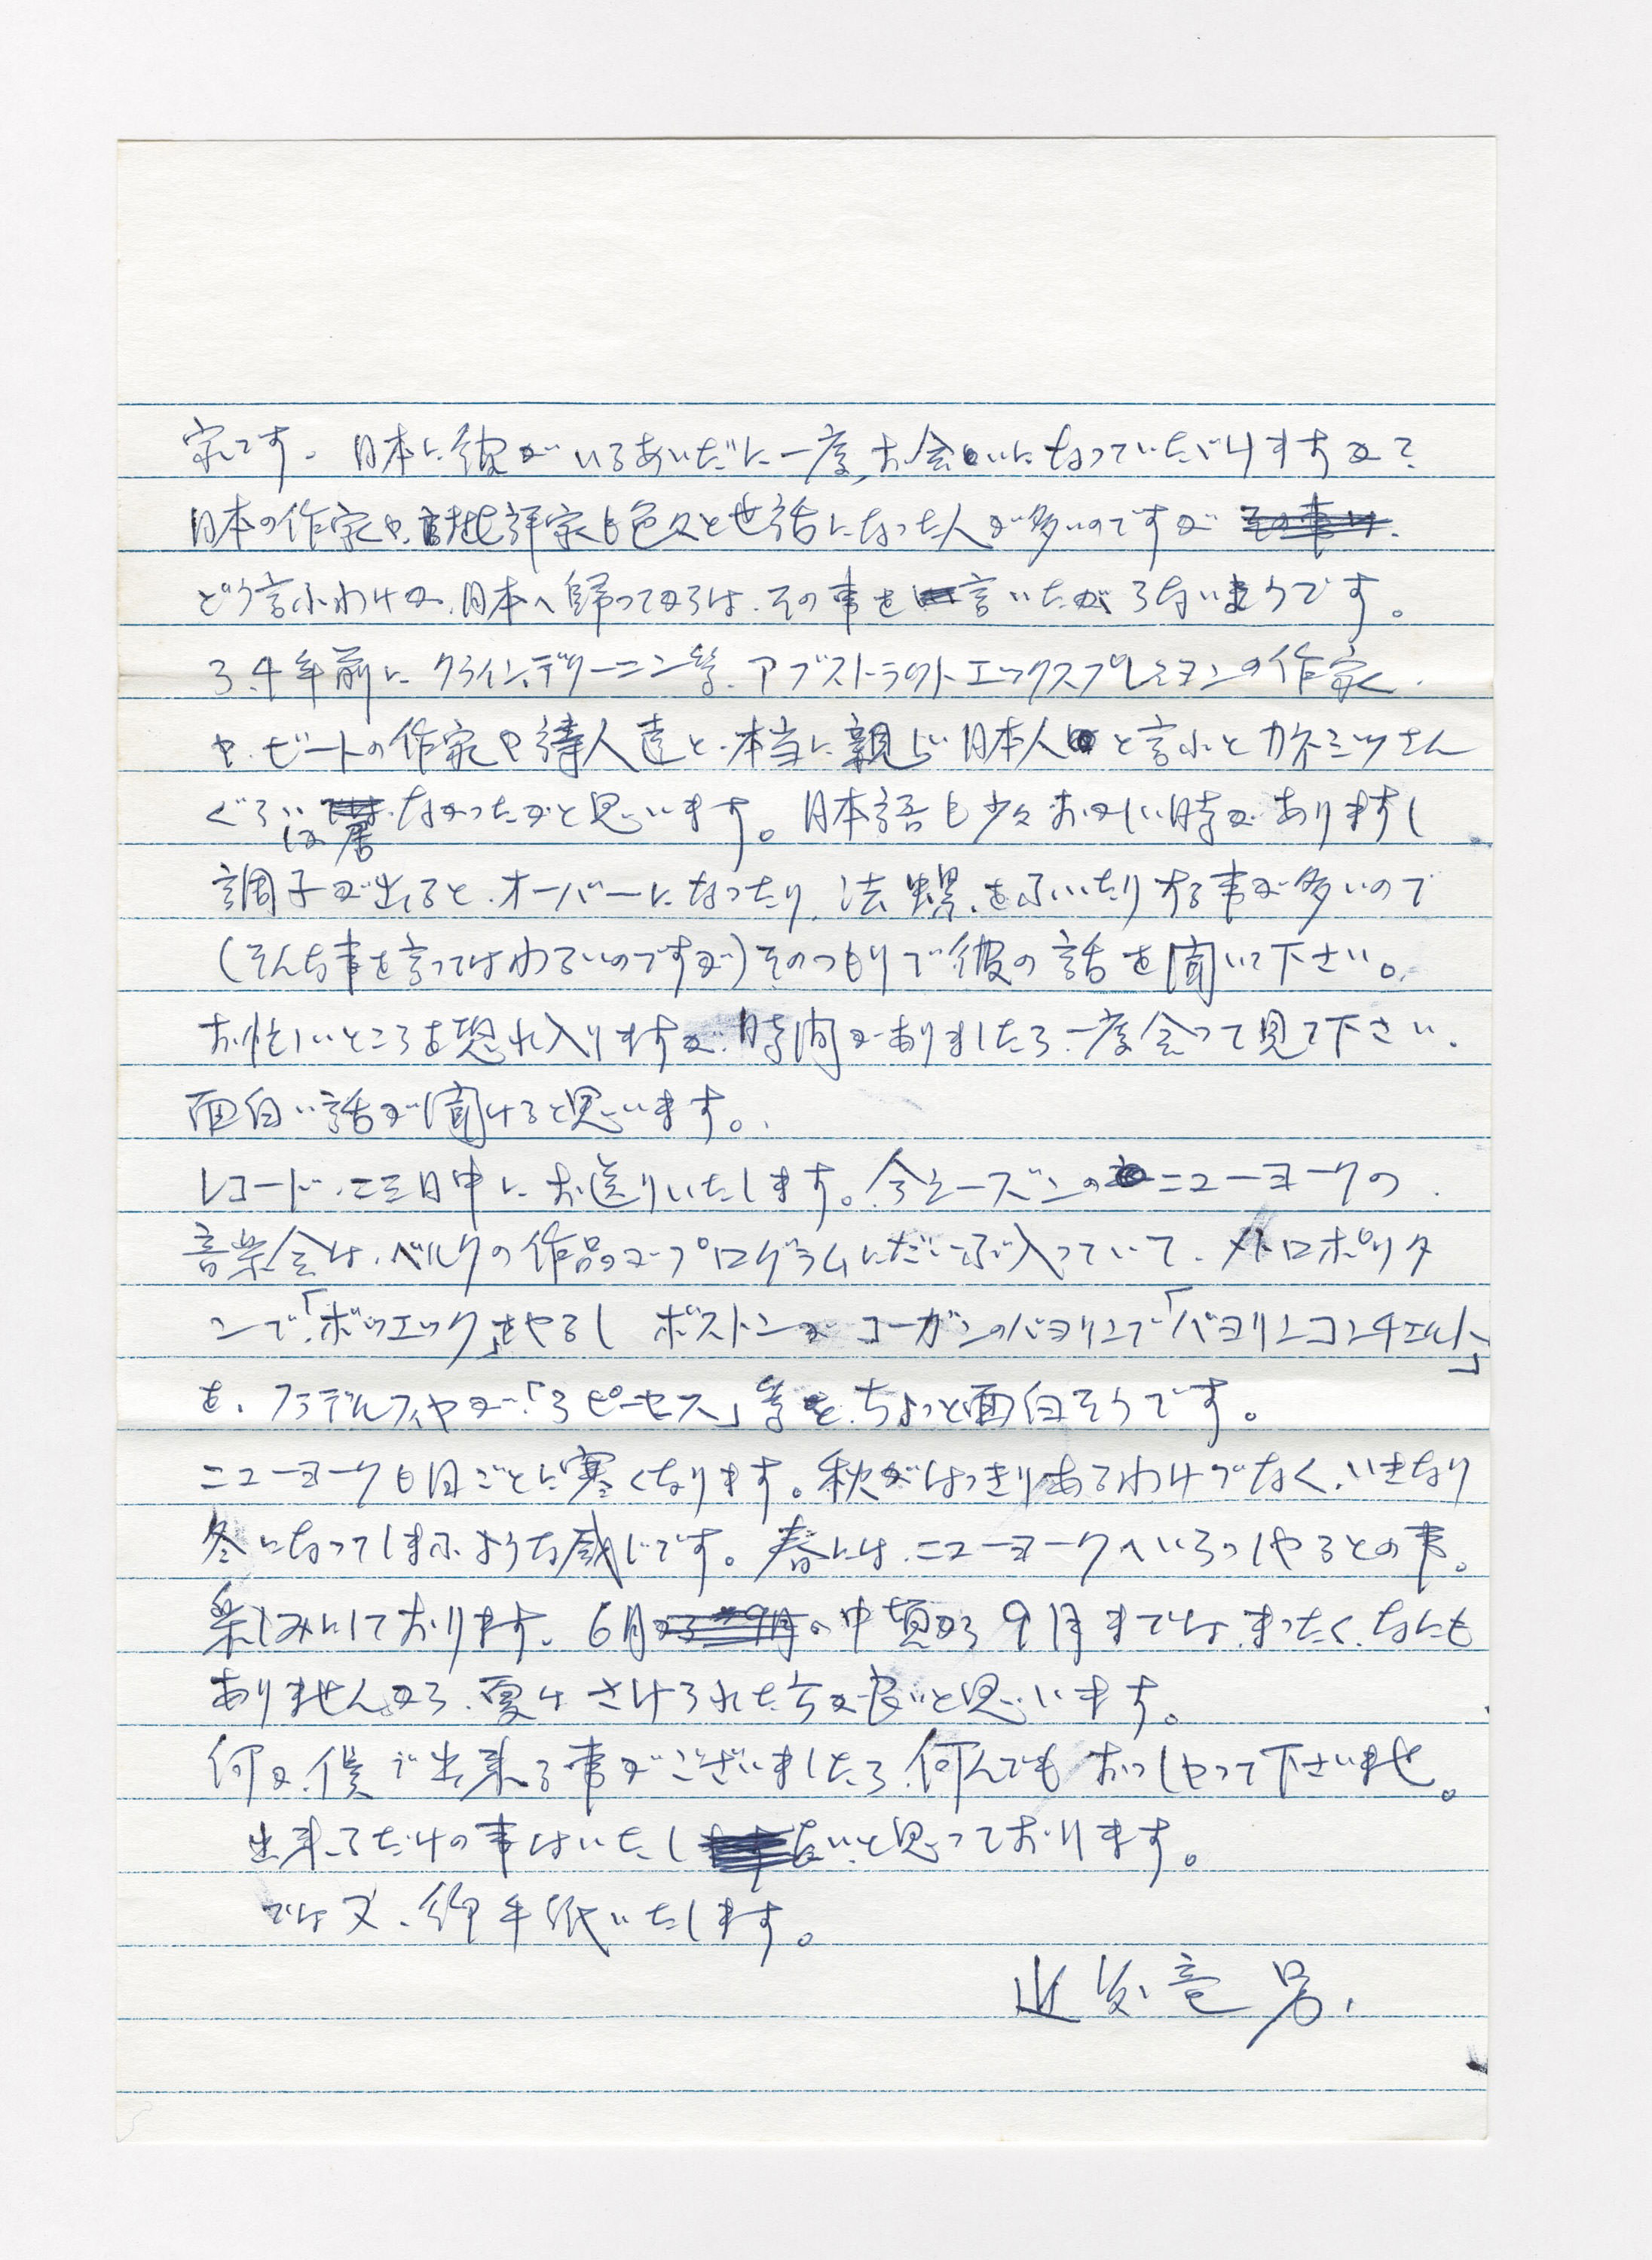 家です。日本に彼がいるあいだに一度、お会いになっていただけますか?
日本の作家や、批評家も色々と世話になった人が多いのですが
どう言ふわけか、日本へ帰ってからは、その事を言いたがらないようです。
3、4年前に、クライン、デクーニン等、アブストラクトエックスプレッションの作家、
や、ビートの作家や詩人達と、本当に親しい日本人と言ふとカネミツさん
ぐらいしか居なかったかと思います。日本語も少々おかしい時がありますし
調子が出ると、オーバーになったり、法螺、をふいたりする事が多いので
(そんな事を言ってはわるいのですが)そのつもりで彼の話を聞いて下さい。
お忙しいところを恐れ入りますが、時間がありましたら、一度会って見て下さい。
面白い話が聞けると思います。
レコード、二三日中に、お送りいたします。今シーズンのニューヨークの
音楽会は、ベルクの作品がプログラムにだいぶ入っていて、メトロポリタ
ンで、「ボツエック」をやるし ボストンが コーガンのバヨリンで「バヨリンコンチェルト」
を、フラデルフィヤが、「3ピーセス」等を、ちょっと面白そうです。
ニューヨークも日ごとに寒くなります。秋がはっきりあるわけでなく、いきなり
冬になってしまふような感じです。春には、ニューヨークへいらっしゃるとの事。
楽しみにしております。6月の中頃から9月までは、まったく、なにも
ありませんから、夏は さけられた方が良いと思います。
何か、僕で出来る事がございましたら、何んでも おっしゃって下さいませ。
出来るだけの事はいたしたいと思っております。
では又、御手紙いたします。
近藤竜男、